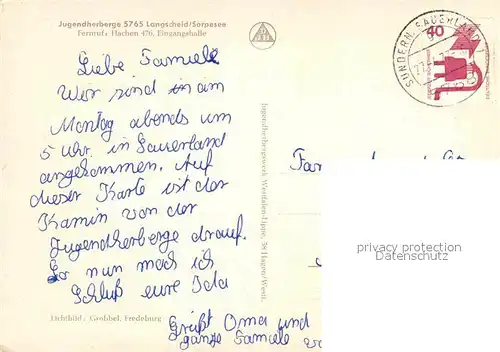 Jugendherberge 5765 Langscheid/Sorpesee
Fernruf: Hachen 476, Eingangshalle
Liebe Familie
Wir sind in am
Montag abends um
5 Uhr, in Sauerland
angekommen. Auf
dieser Karte ist der
Kamin von der
Jugendherberge drauf.
So nun mach ich
Schluß eure Ida
Grüßt Oma und
ganze Famiele
Lichtbild: Grobbel, Fredeburg
Jugendherbergswerk Westfalen-Lippe, 58 Hagen/Westf.
SUNDERN, SAUERLAND 1
40
Fam
privacy protection
Datenschutz